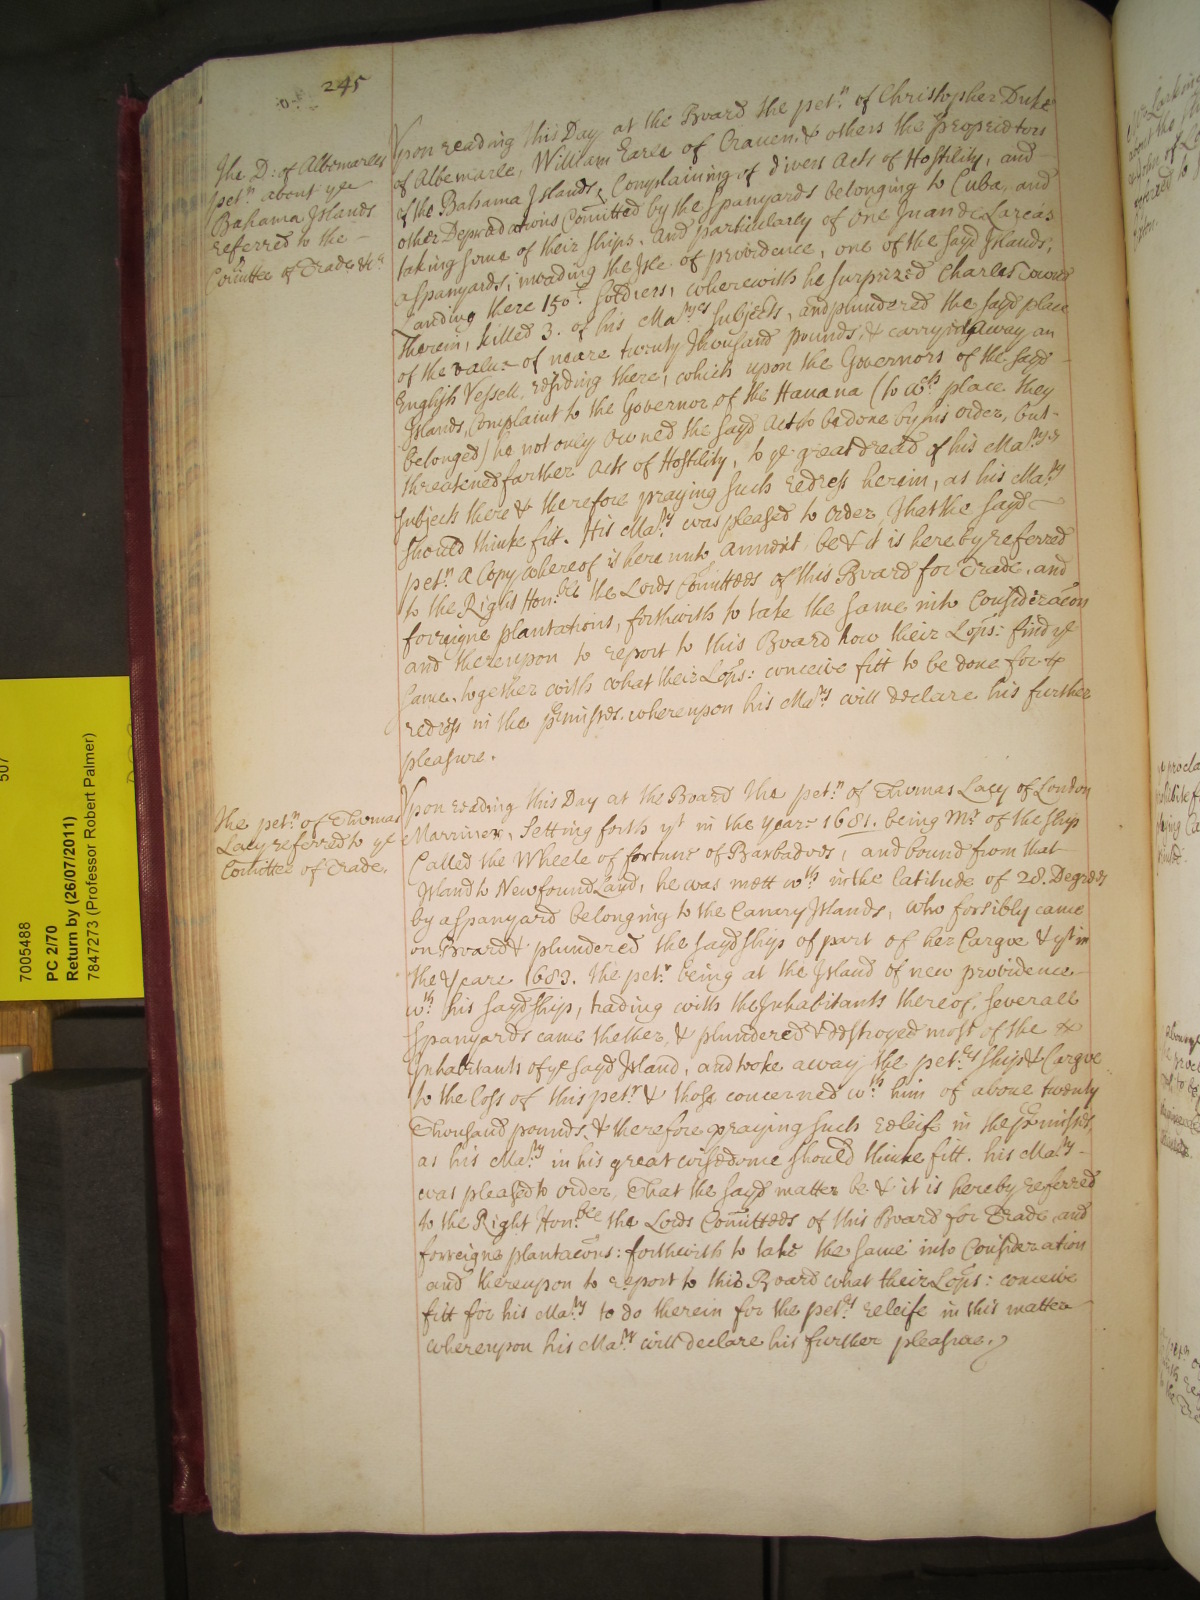 245
The D: of Albemarles
petn. about ye
Bahama Islands
referred to the
Comittee of Trade &c.
Upon reading this Day at the Board the petn. of Christopher Duke
of Albemarle, William Earle of Craven, & others the Propriators
of the Bahama Islands, Complaining of divers Acts of Hostility, and
other Depredations Comitted by the Spanyards belonging to Cuba, and
taking some of their Ships. And particularly of one Juan de Larca's
a Spanyards, invading the Isle of providence, one of the sayd Islands,
landing there 150: Soldiers, wherewith he surprized Charles Towne
Therein, killed 3. of his Matyes Subjects, and plundered the sayd place
of the value of neare twenty Thousand pounds, & carrying away an
English Vessell, residing there, which upon the Governors of the sayd
Islands, Complaint to the Governor of the Havana (to wch place they
belonged) he not only owned the sayd Act to be done by his order, but
threatened farther Acts of Hostility, to ye great dread of his Matyes
Subjects there & therefore praying such redress herein, as his Maty
should thinke fitt. His Maty was pleased to order, That the sayd
petn. a Copy whereof is here unto annext, be & it is hereby referred
to the Right Honble the Lords Comittees of this Board for Trade, and
forreigne plantations, forthwith to take the same into Consideracon
and thereupon to report to this Board how their Lopps: find ye
same, together with what their Lopps: conceive fitt to be done for
redress in the premisses. whereupon his Maty will declare his further
pleasure.
The petn. of Thomas
Lacy referred to ye
Comittee of Trade.
Upon reading this Day at the Board the petn. of Thomas Lacy of London
Marriner, Setting forth yt in the Yeare 1681. being Mr. of the Ship
Called the Wheele of fortune of Barbadoes, and bound from that
Island to Newfound Land, he was mett wth in the latitude of 28. Degrees
by a Spanyard belonging to the Canary Islands, who forsibly came
on Board & plundered the sayd Ship of part of her Cargoe & yt in
the Yeare 1683. the petr. being at the Island of new providence
wth his sayd Ship, trading with the Inhabitants thereof, severall
Spanyards came thether & plundered & destroyed most of the
Inhabitants of ye sayd Island, and tooke away the petrs Ship & Cargoe
to the loss of this petr & those concerned wth him of above twenty
Thousand pounds, & therefore praying such releife in the premisses,
as his Maty in his great wisedome should thinke fitt. his Maty
was pleased to order, That the sayd matter be & it is hereby referred
to the Right Honble the Lords Comittees of this Board for Trade and
forreigne plantacons: forthwith to take the same into Consideration
and thereupon to report to this Board what their Lopps: conceive
fitt for his Maty to do therein for the petrs releife in this matter
whereupon his Maty will declare his further pleasure.
507
7005488
PC 2/70
Return by (26/07/2011)
7847273 (Professor Robert Palmer)